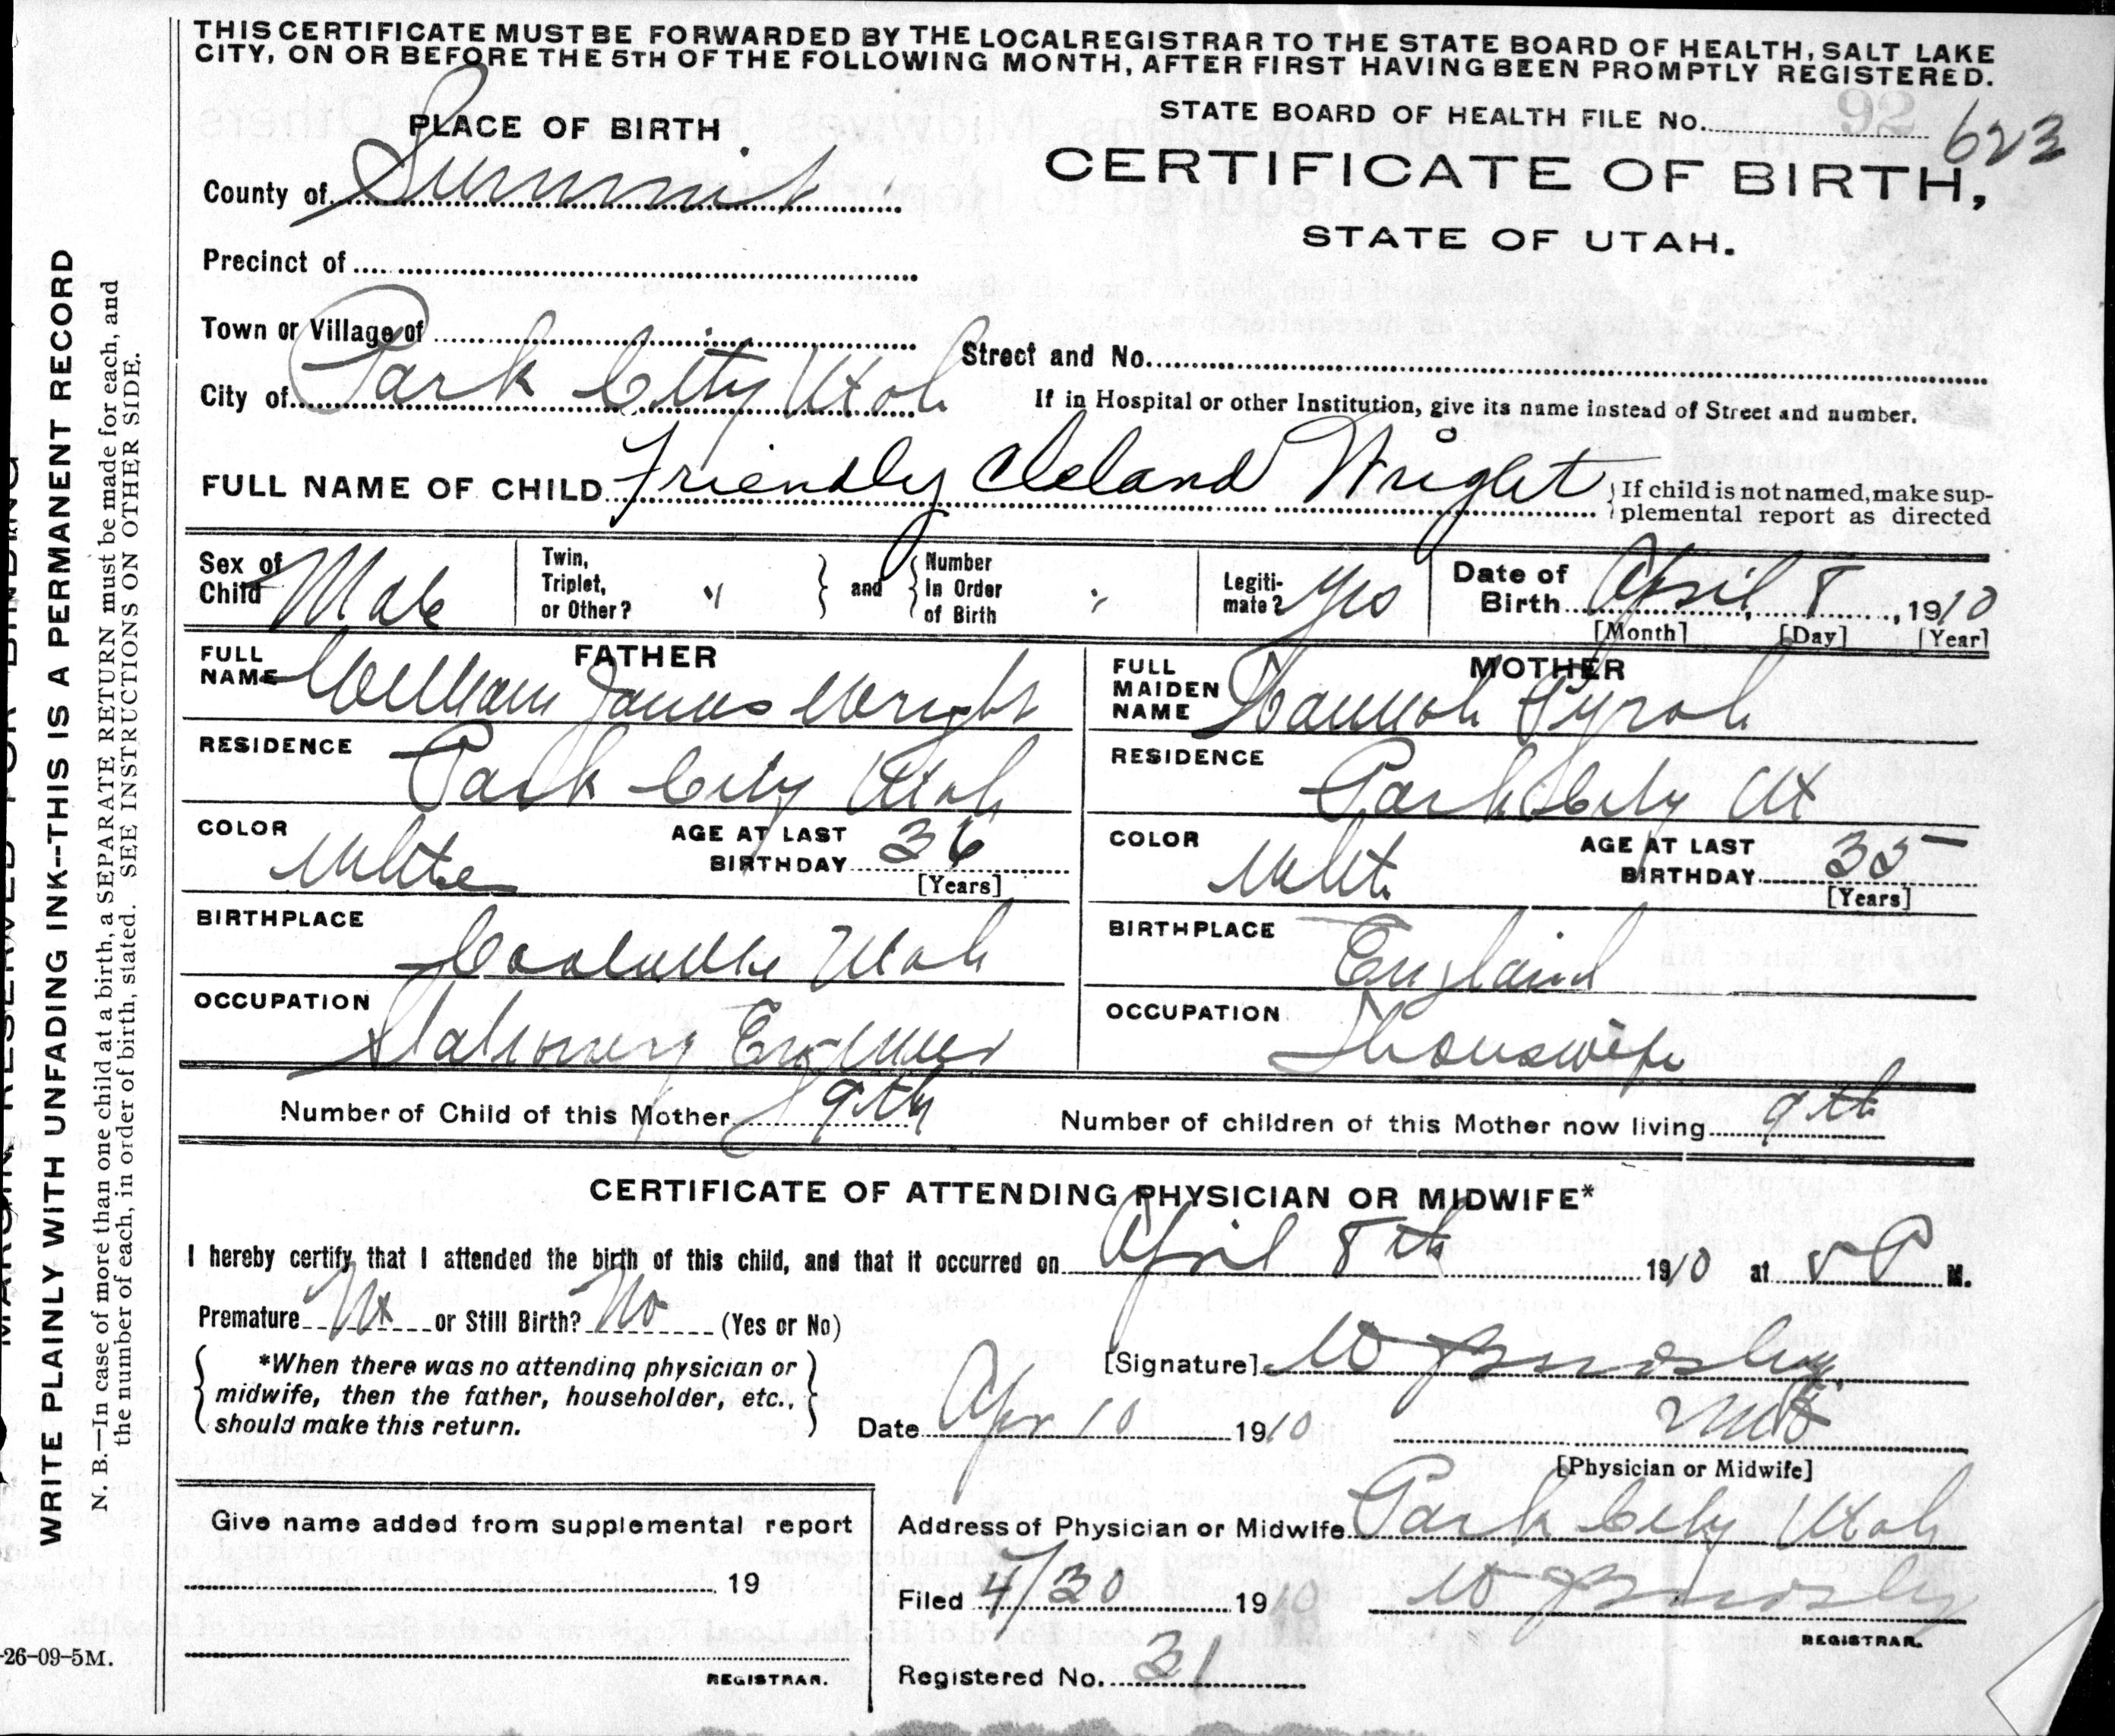 THIS CERTIFICATE MUST BE FORWARDED BY THE LOCAL REGISTRAR TO THE STATE BOARD OF HEALTH, SALT LAKE
CITY, ON OR BEFORE THE 5TH OF THE FOLLOWING MONTH, AFTER FIRST HAVING BEEN PROMPTLY REGISTERED.
PLACE OF BIRTH
STATE BOARD OF HEALTH FILE No. 92 623
County of Summit
CERTIFICATE OF BIRTH,
STATE OF UTAH.
Precinct of
Town or Village of
Street and No.
City of Park City Utah
If in Hospital or other Institution, give its name instead of Street and number.
FULL NAME OF CHILD Friendly Cleland Wright
If child is not named, make sup-
plemental report as directed
Sex of Child Male
Twin, Triplet, or Other? "
and
Number in Order of Birth "
Legiti-mate? Yes
Date of Birth April 8, 1910
[Month] [Day] [Year]
FATHER
FULL NAME William James Wright
RESIDENCE Park City Utah
COLOR White
AGE AT LAST BIRTHDAY 36
[Years]
BIRTHPLACE Coalville Utah
OCCUPATION Stationery Engineer
MOTHER
FULL MAIDEN NAME Hannah
RESIDENCE Park City Ut
COLOR White
AGE AT LAST BIRTHDAY 35
[Years]
BIRTHPLACE England
OCCUPATION Houswife
Number of Child of this Mother 9th
Number of children of this Mother now living 9th
CERTIFICATE OF ATTENDING PHYSICIAN OR MIDWIFE*
I hereby certify that I attended the birth of this child, and that it occurred on April 8th 1910 at P M.
Premature or Still Birth? No (Yes or No)
*When there was no attending physician or
midwife, then the father, householder, etc.,
should make this return.
[Signature] W
Date Apr 10 1910
[Physician or Midwife]
Give name added from supplemental report
19
REGISTRAR.
Address of Physician or Midwife Park City Utah
Filed 4/30 1910 W
REGISTRAR.
Registered No. 31
MARGIN RESERVED FOR BINDING
WRITE PLAINLY WITH UNFADING INK--THIS IS A PERMANENT RECORD
N. B.—In case of more than one child at a birth, a SEPARATE RETURN must be made for each, and
the number of each, in order of birth, stated. SEE INSTRUCTIONS ON OTHER SIDE.
-26-09-5M.